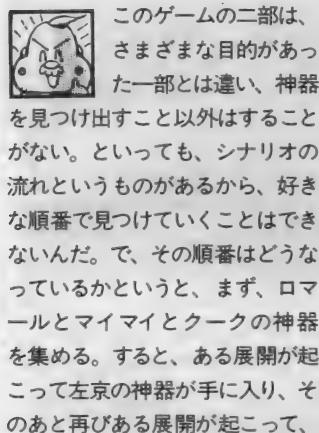 このゲームの二部は、
さまざまな目的があっ
た一部とは違い、神器
を見つけ出すこと以外はすること
がない。といっても、シナリオの
流れというものがあるから、好き
な順番で見つけていくことはでき
ないんだ。で、その順番はどうな
っているかというと、まず、ロマ
ールとマイマイとクークの神器
を集める。すると、ある展開が起
こって左京の神器が手に入り、そ
のあと再びある展開が起こって、